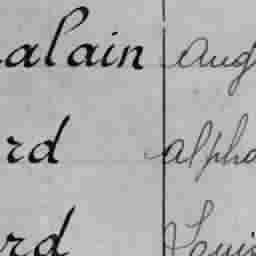 alain Aug
rd alpho
rd Louis